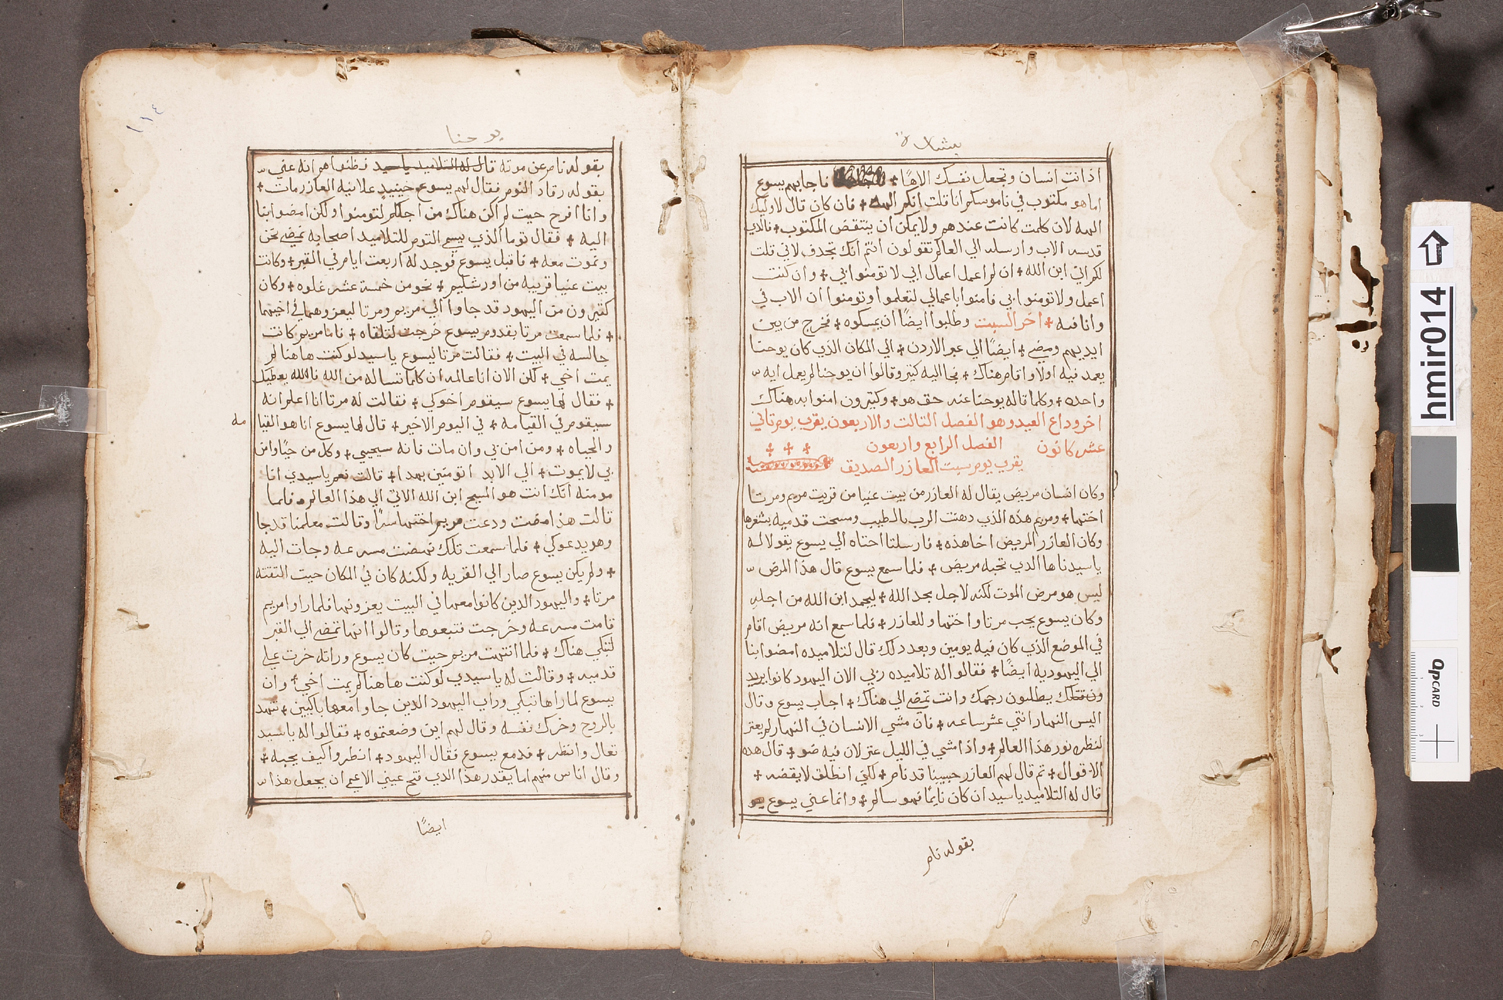 بشارة
اذ انت انسان وتجعل نفسك الاهًا + فاجابهم يسوع
اما هو مكتوب في ناموسكم انا قلت انكم الهه + فان كان قال لاوليك
الهه لان كلمت كانت عندهم ولا يمكن ان ينتقض المكتوب + فالذي
قدسه الاب وارسله الي العالم تقولون انتم انك تجدف لاني قلت
لكم اني ابن الله + ان لم اعمل اعمال ابي لا تومنوا بي + وان كنت
اعمل ولا تومنوا بي فامنوا باعمالي لتعلموا وتومنوا ان الاب في
وانا فيه + اخر السبت وطلبوا ايضًا ان يمسكوه + فخرج من بين
ايديهم ومضي + ايضًا الي عبر الاردن + الي المكان الذي كان يوحنا
يعمد فيه اولًا واقام هناك + فجا اليه كتير وقالوا ان يوحنا لم يعمل ايه
واحده + وكلما قاله يوحنا عنه حق هو + وكتيرون امنوا به هناك
اخر وداع العيد وهو الفصل التالت والاربعون يقرب يوم تاني
عشر كانون الفصل الرابع واربعون + + +
يقرب يوم سبت العازر الصديق
وكان انسان مريض يقال له العازر من بيت عنيا من قريت مريم ومرتا
اختها + ومريم هذه الذي دهنت الرب بالطيب ومسحت قدميه بشعرها
وكان العازر المريض اخا هذه + فارسلتا اختاه الي يسوع يقولا له
يا سيدنا ها الدي تحبه مريض + فلما سمع يسوع قال هذا المرض
ليس هو مرض الموت لكنه لاجل مجد الله + ليمجد ابن الله من اجله
وكان يسوع يحب مرتا واختها وللعازر + فلما سمع انه مريض اقام
في الموضع الذي كان فيه يومين وبعد دلك قال لتلاميده امضوا بنا
الي اليهوديه ايضًا + فقالوا له تلاميده ربي الان اليهود كانوا يريد
ون قتلك يطلبون رجمك وانت تمضي الي هناك + اجاب يسوع وقال
اليس النهار اتني عشر ساعه + فان مشي الانسان في النهار لم يعتر
لنظره نور هذا العالم + واذا مشي في الليل عتر لان فيه ضو + قال هده
الاقوال + تم قال لهم العازر حبيبنا قد نام + لكني انطلق لايقضه +
قال له التلاميد يا سيد ان كان نايمًا فهو سالم + وانما عني يسوع
بقوله نام
يوحنا
١١٤
بقوله نام عن موته قال له التلاميد يا سيد فظنوا هم انه عني
بقوله رقاد النوم فقال لهم يسوع حينيد علانيه العازر مات +
وانا افرح حيت لم اكن هناك من اجلكم لتومنوا ولكن امضوا بنا
اليه + فقال توما الذي يسمي التوم للتلاميد اصحابه نمضي نحن
ونموت معه + فاقبل يسوع فوجد له اربعت ايام في القبر + وكانت
بيت عنيا قريبه من اورشليم + نحو من خمسة عشر غلوه + وكان
كتيرون من اليهود قد جاوا الي مريم ومرتا ليعزوهما في اخيهما
+ فلما سمعت مرتا بقدوم يسوع خرجت لتلقاه + فاما مريم كانت
جالسه في البيت + فقالت مرتا ليسوع يا سيد لو كنت هاهنا لم
يمت اخي + لكن الان انا عالمه ان كلما تساله من الله فالله يعطيك
+ فقال لها يسوع سيقوم اخوكي + فقالت له مرتا انا اعلم انه
سيقوم في القيامه + في اليوم الاخير + قال لها يسوع انا هو القيا
مه
والحياه + ومن امن بي وان مات فانه سيحيي + وكل من حيًا وامن
بي لا يموت + الي الابد اتومنين بهدا + قالت نعم يا سيدي انا
مومنه انك انت هو المسيح ابن الله الاتي الي هذا العالم + فلما
قالت هدا مضت ودعت مريم اختها سرًا وقالت معلمنا قد جا
وهو يدعوكي + فلما سمعت تلك نهضت مسرعه وجات اليه
+ ولم يكن يسوع صار الي القريه ولكنه كان في المكان حيت التقته
مرتا + واليهود الدين كانوا معها في البيت يعزونها فلما راوا مريم
قامت مسرعه وخرجت فتبعوها وقالوا انها تمضي الي القبر
لتبكي هناك + فلما انتهت مريم حيت كان يسوع وراته خرت علي
قدميه + وقالت له يا سيدي لو كنت هاهنا لم يمت اخي + وان
يسوع لما راها تبكي وراى اليهود الدين جاوا معها باكيين + تنهد
بالروح وحرك نفسه وقال لهم اين وضعتموه + فقالوا له يا سيد
تعال وانظر + فدمع يسوع فقال اليهود + انظروا كيف يحبه +
وقال اناس منهم اما يقدر هذا الدي فتح عيني الاعمي ان يجعل هذا
ايضًا
hmir014
QPCARD